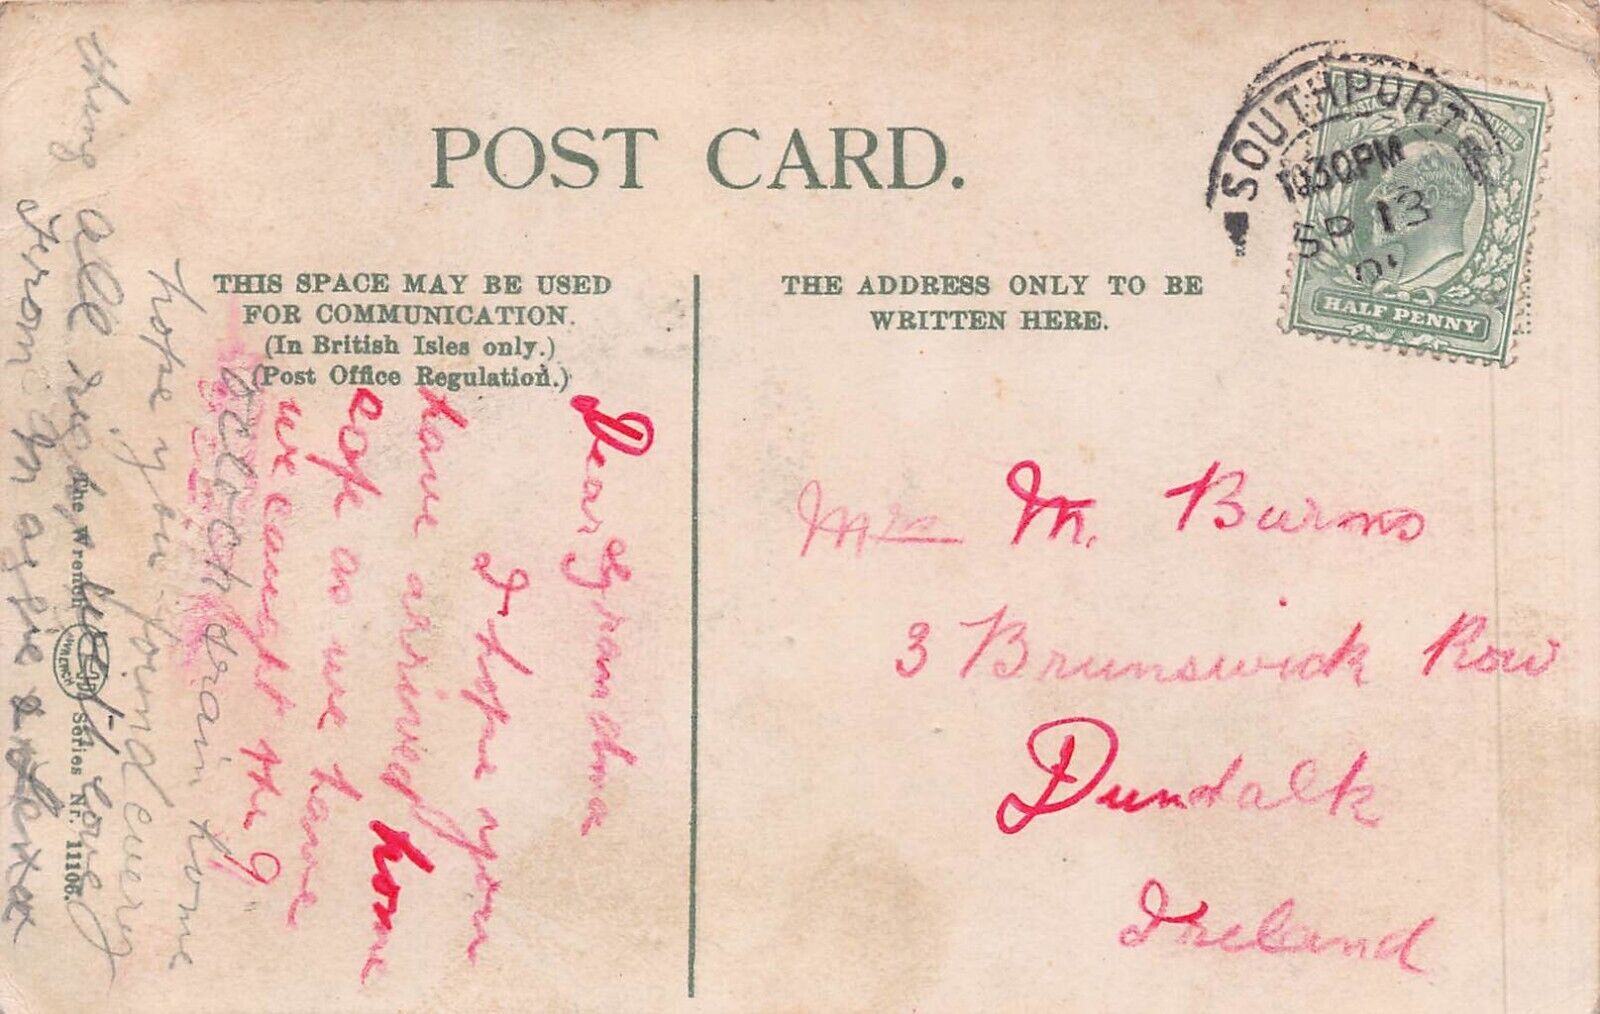 POST CARD.
THIS SPACE MAY BE USED
FOR COMMUNICATION.
(In British Isles only.)
(Post Office Regulation.)
THE ADDRESS ONLY TO BE
WRITTEN HERE.
SOUTHPORT
1030PM
SP 13
HALF PENNY
Dear Grandma
I hope you
have arrived home
safe as we have
we caught the 9
oclock train home
hope you found every
thing all right, love
from
Mrs M. Burns
3 Brunswick Row
Dundalk
Ireland
The Wrench Series Nr. 11106.